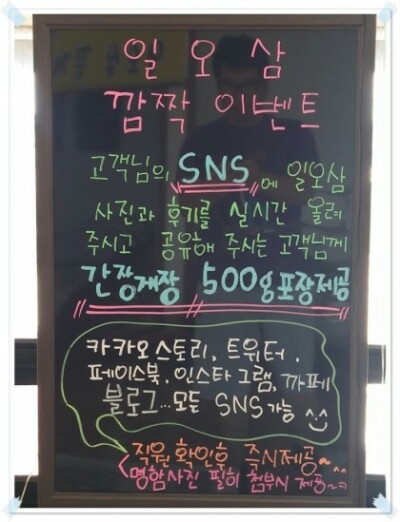 일 오 삼
깜짝 이벤트
고객님의 SNS 에 일오삼
사진과 후기를 실시간 올려
주시고 공유해 주시는 고객님께
간장게장 500g 포장제공
카카오스토리, 트위터,
페이스북, 인스타그램, 까페
블로그... 모든 SNS 가능
직원 확인후 즉시제공~^^
명함사진 필히 첨부시 제공~